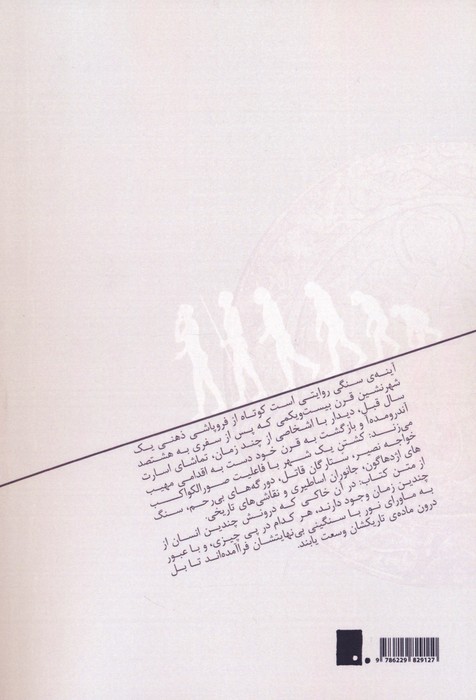 آینه‌ی سنگی روایتی است کوتاه از فروپاشی ذهنی یک
شهرنشین قرن بیست‌ویکمی که پس از سفری به هشتصد
سال قبل، دیدار با اشخاصی از چند زمان، تماشای اسارت
آندرومدا و بازگشت به قرن خود دست به اقدامی مهیب
می‌زند: کشتن یک شهر با فاعلیت صورالکواکب
خواجه نصیر، ستارگان قاتل، دورگه‌های بی‌رحم، سنگ
های اژدهاگون، جانوران اساطیری و نقاشی‌های تاریخی.
از متن کتاب: در آن خاکی که درونش چندین انسان از
چندین زمان وجود دارند، هر کدام در پی چیزی، و با عبور
به ماورای نور با سنگینی بی‌نهایتشان فراآمده‌اند تا بل
درون ماده‌ی تاریکشان وسعت یابند.
9 786229 829127